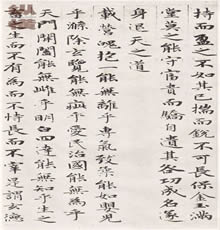 持而盈之不如其已揣而銳不可長保金玉滿
堂莫之能守富貴而驕自遺其咎功成名遂
身退天之道
載營魄抱一能無離乎專氣致柔能如嬰兒
乎滌除玄覽能無疵乎愛民治國能無為乎
天門開闔能無雌乎明白四達能無知乎生之
生而不有為而不恃長而不宰是謂玄德